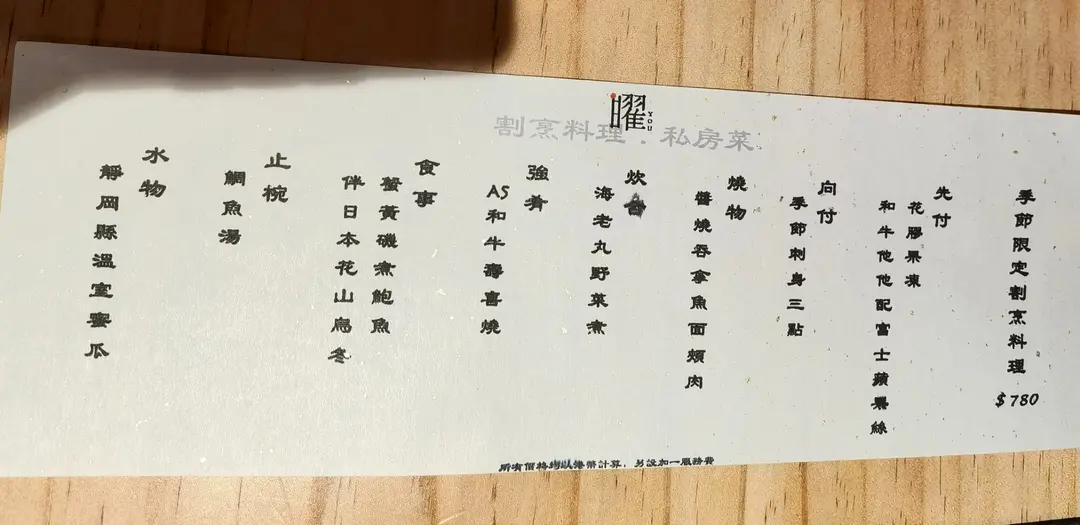 曜
YOU
割烹料理．私房菜
季節限定割烹料理
$780
先付
花膠果凍
和牛他他配富士蘋果絲
向付
季節刺身三點
燒物
醬燒吞拿魚面頰肉
炊合
海老丸野菜煮
強肴
A5和牛壽喜燒
食事
蟹黃磯煮鮑魚
伴日本花山烏冬
止椀
鯛魚湯
水物
靜岡縣溫室蜜瓜
所有價格均以港幣計算，另設加一服務費